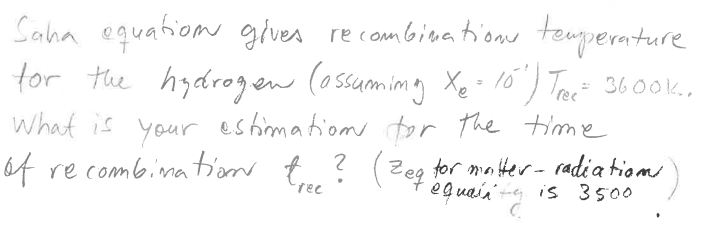 Saha equation gives recombination temperature
for the hydrogen (assuming Xe = 10⁻¹) Trec = 3600K.
What is your estimation for the time
of recombination trec? (Zeq for matter-radiation
equality is 3500)